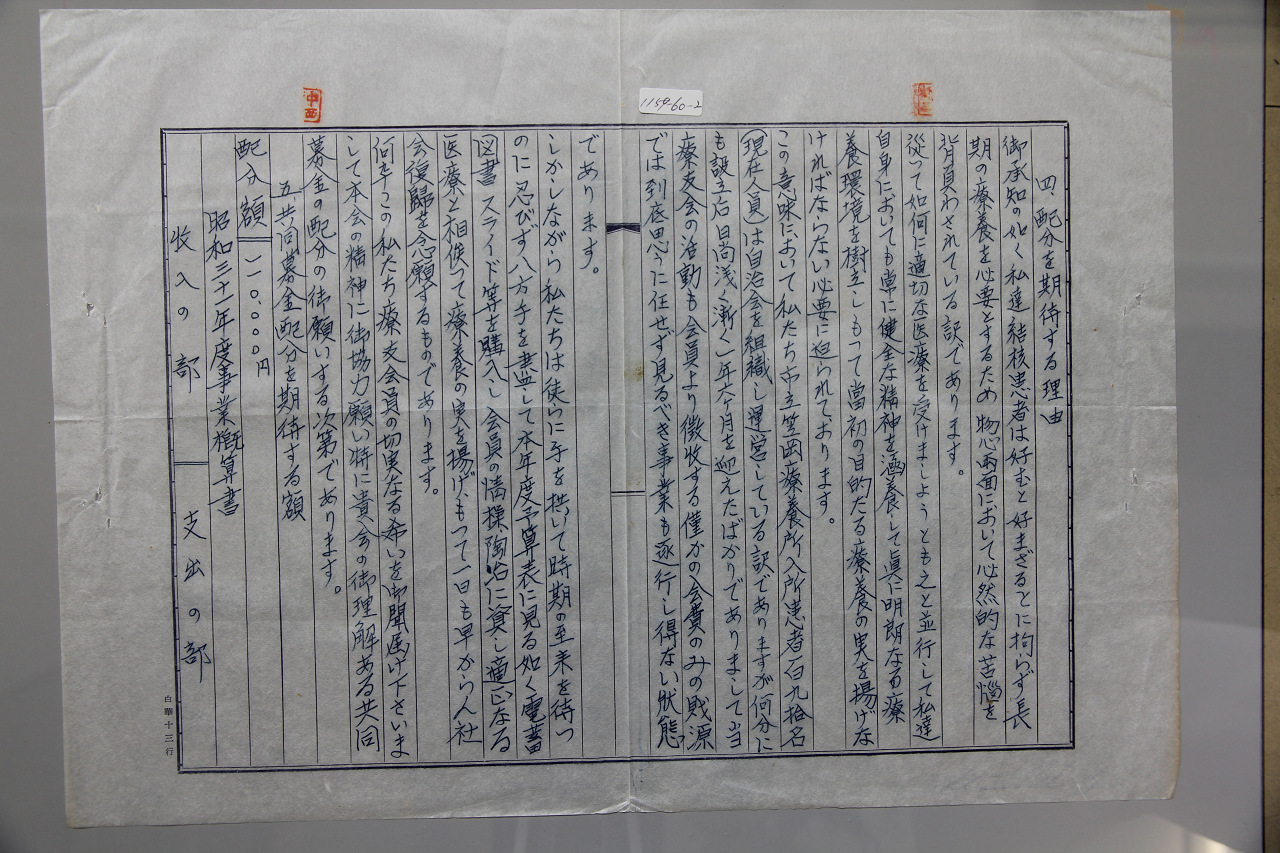 1159-60-2
四、配分を期待する理由
御承知の如く私達結核患者は好むと好まざるとに拘らず長
期の療養を必要とするため物心両面において必然的な苦悩を
背負わされている訳であります。
従って如何に適切な医療を受けましようともそれと並行して私達
自身においても常に健全な精神を涵養して真に明朗なる療
養環境を樹立しもって当初の目的たる療養の実を揚げな
ければならない必要に迫られております。
この意味において私たち市立笠岡療養所入所患者百九拾名
(現在人員)は自治会を組織し運営している訳でありますが何分に
も設立后日尚浅く漸く一年六ケ月を迎えたばかりでありまして当
療友会の活動も会員より徴收する僅かの会費のみの財源
では到底思うに任せず見るべき事業も逐行し得ない狀態
であります。
しかしながら私たちは徒らに手を拱いて時期の至来を待つ
のに忍びず八方手を盡して本年度予算表に見る如く電蓄
図書スライド等を購入し会員の情操、陶冶に資し適正なる
医療と相俟って療養の実を揚げ、もって一日も早からん社
会復歸を念願するものであります。
何卒この私たち療友会員の切実なる希いを御聞届け下さいま
して本会の精神に御協力願い特に貴会の御理解ある共同
募金の配分の御願いする次第であります。
五、共同募金配分を期待する額
配分額 一一〇、〇〇〇円
昭和三十一年度事業概算書
收入の部 支出の部
白華十三行
中西